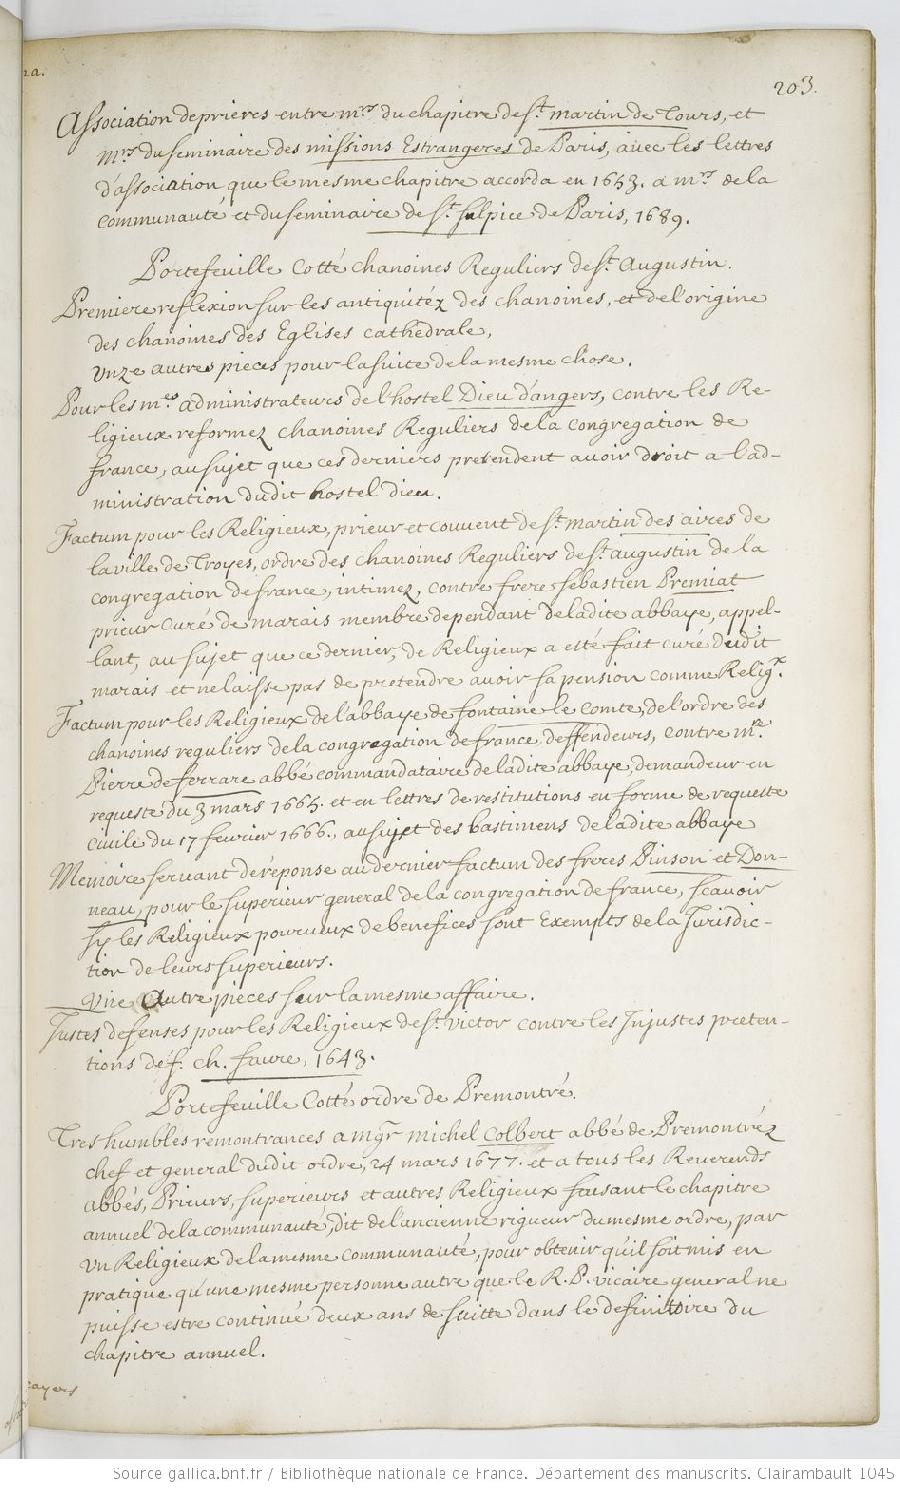 203.
Association de prieres entre mrs du chapitre de st martin de Tours, et
mrs du seminaire des missions Estrangeres de Paris, avec les lettres
d'association que le mesme chapitre accorda en 1653. a mrs de la
communauté et du seminaire de st sulpice de Paris, 1689.
Portefeuille Cotté chanoines Reguliers de st Augustin.
Premiere reflexion sur les antiquitéz des chanoines, et de l'origine
des chanoines des Eglises cathédrale,
unze autres pieces pour la suite de la mesme chose.
Pour les mes administrateurs de l'hostel Dieu d'angers, contre les Re-
ligieux reformez chanoines Reguliers de la congregation de
france, au sujet que ces derniers pretendent avoir droit a l'ad-
ministration dudit hostel dieu.
Factum pour les Religieux, prieur et couvent de st martin des aires de
la ville de Troyes, ordre des chanoines Reguliers de st augustin de la
congregation de france, intimez, contre frere Sebastien Premiat
prieur curé de marais membre dependant de ladite abbaye, appel-
lant, au sujet que ce dernier, de Religieux a esté fait curé dudit
marais et ne laisse pas de pretendre avoir sa pension comme Religx.
Factum pour les Religieux de l'abbaye de fontaine le comte, de l'ordre des
chanoines reguliers de la congregation de france, deffendeurs, contre mre
Pierre de ferrare abbé commandataire de ladite abbaye, demandeur en
requeste du 3 mars 1665. et en lettres de restitutions en forme de requeste
civile du 17 fevrier 1666., au sujet des bastimens de ladite abbaye
Memoire servant de réponse au dernier factum des freres Pinson et Don-
neau, pour le superieur general de la congregation de france, scavoir
sy les Religieux pourvux de benefices sont Exempts de la Jurisdic-
tion de leurs superieurs.
Une Autre pieces sur la mesme affaire.
Justes defenses pour les Religieux de st victor contre les Injustes preten-
tions de f. ch. faure, 1643.
Portefeuille Cotté ordre de Premontré.
Tres humbles remontrances a mgr michel Colbert abbé de Premontréz
chef et general dudit ordre, 24 mars 1677. et a tous les Reverends
abbés, Prieurs, superieurs et autres Religieux faisant le chapitre
annuel de la communauté, dit de l'ancienne rigueur du mesme ordre, par
un Religieux de la mesme communauté, pour obtenir qu'il soit mis en
pratique qu'une mesme personne autre que le R. P. vicaire general ne
puisse estre continué deux ans de suitte dans le definitoire du
chapitre annuel.
Source gallica.bnf.fr / Bibliothèque nationale de France. Département des manuscrits. Clairambault 1045